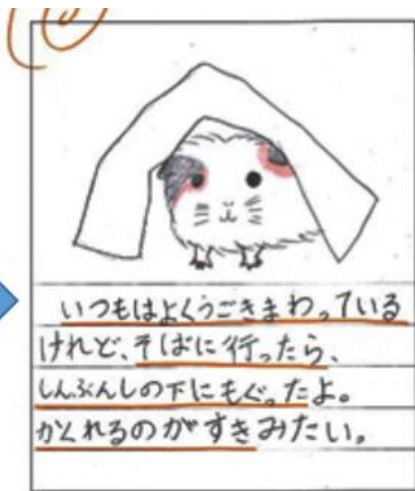 いつもはよくうごきまわっている
けれど、そばに行ったら、
しんぶんしの下にもぐったよ。
かくれるのがすきみたい。